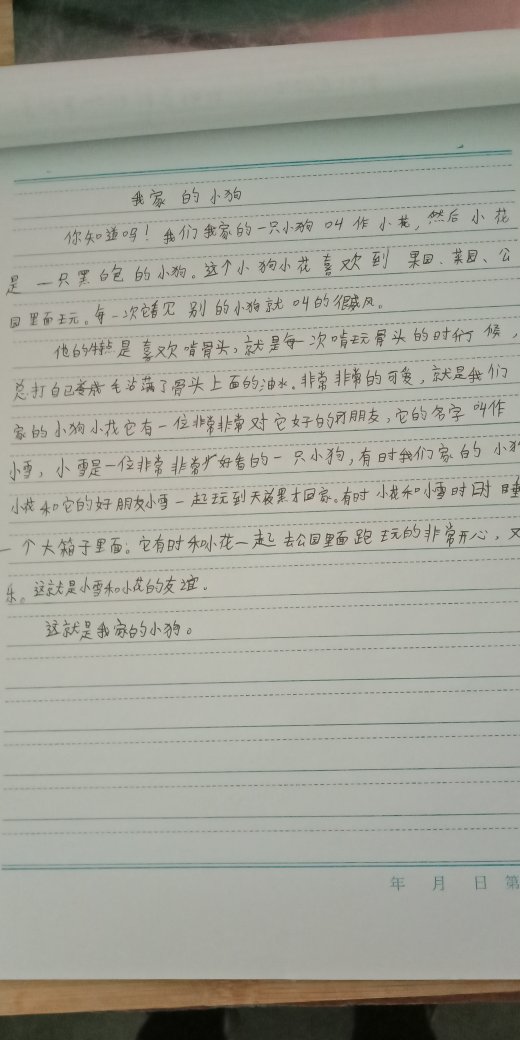 我家的小狗
你知道吗！我们我家的一只小狗叫作小花，然后小花
是一只黑白色的小狗。这个小狗小花喜欢到果园、菜园、公
园里面玩。每一次它看见别的小狗就叫的很威风。
他的特点是喜欢啃骨头，就是每一次啃玩骨头的时候，
总打自己毛沾满了骨头上面的油水。非常非常的可爱，就是我们
家的小狗小花它有一位非常非常对它好的朋友，它的名字叫作
小雪，小雪是一位非常非常好看的一只小狗，有时我们家的小狗
小花和它的好朋友小雪一起玩到天黑才回家。有时小花和小雪时睡
一个大箱子里面。它有时和小花一起去公园里面跑玩的非常开心，又
乐。这就是小雪和小花的友谊。
这就是我家的小狗。
年 月 日 第